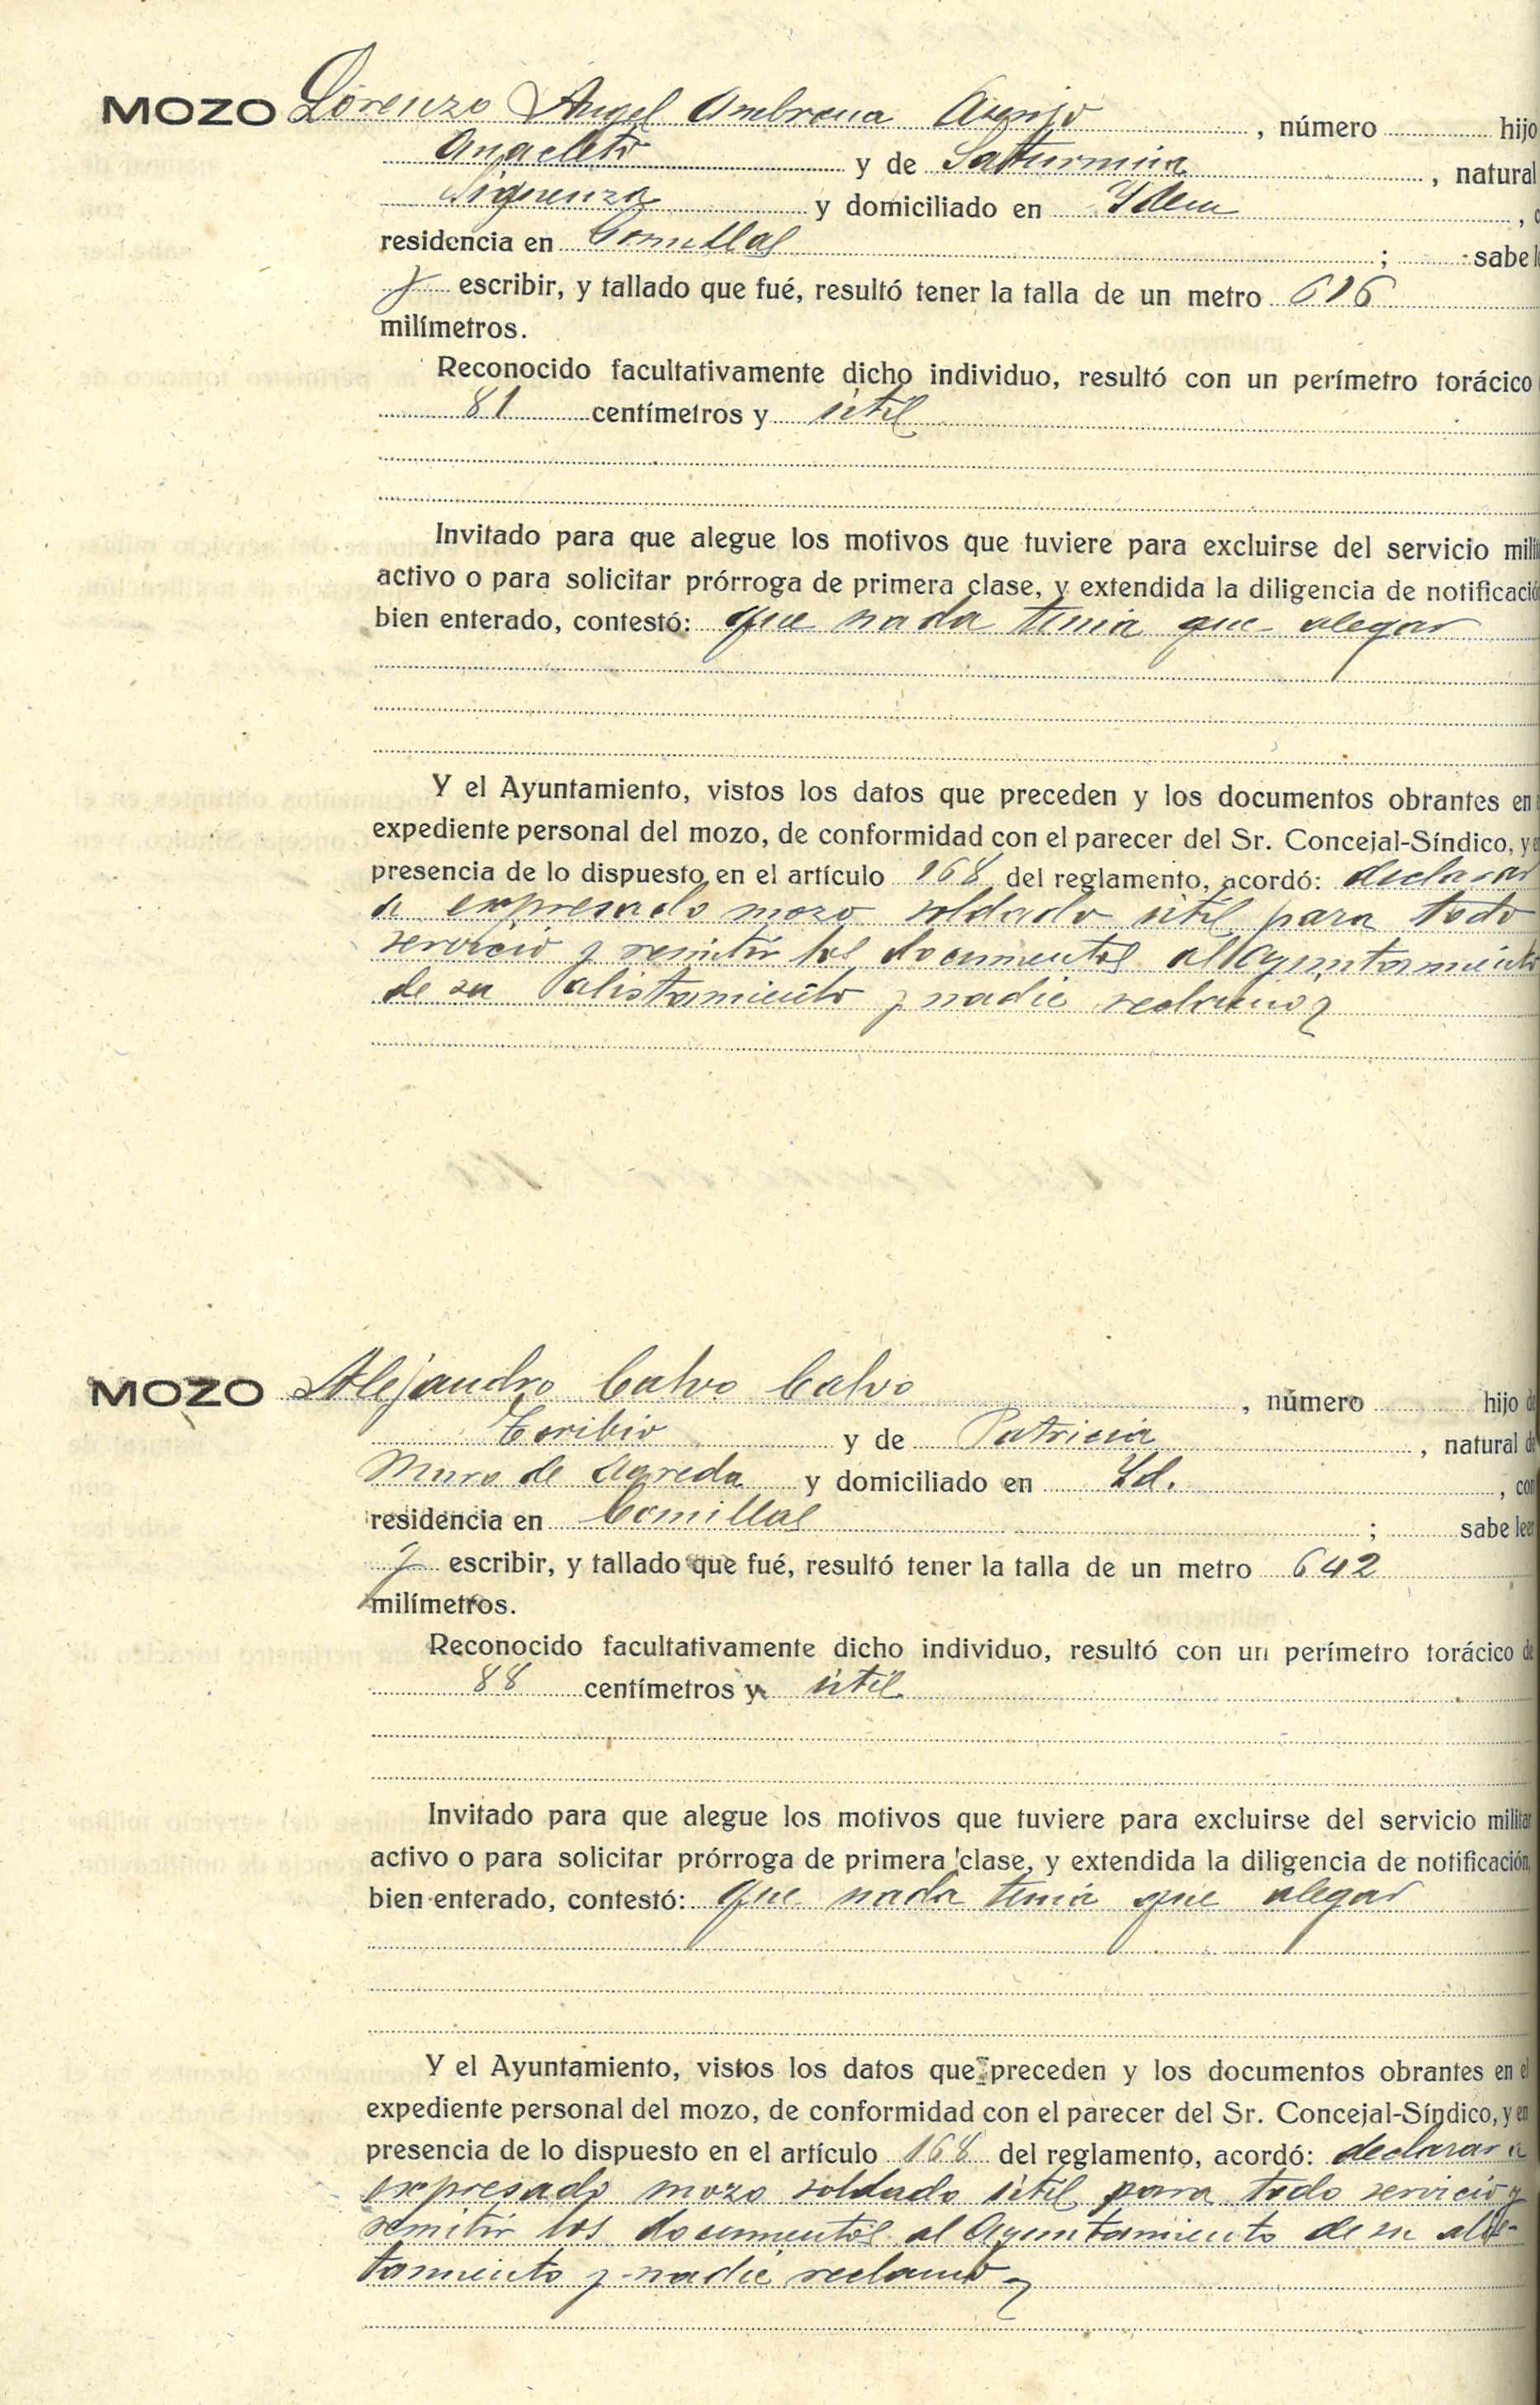 MOZO Lorenzo Angel Ambrona Asenjo, número hijo
Anacleto y de Saturnina, natural
Siguenza y domiciliado en Idem,
residencia en Comillas; sabe
y escribir, y tallado que fué, resultó tener la talla de un metro 616
milímetros.
Reconocido facultativamente dicho individuo, resultó con un perímetro torácico
81 centímetros y útil
Invitado para que alegue los motivos que tuviere para excluirse del servicio
activo o para solicitar prórroga de primera clase, y extendida la diligencia de notificació
bien enterado, contestó: que nada tenia que alegar
Y el Ayuntamiento, vistos los datos que preceden y los documentos obrantes en
expediente personal del mozo, de conformidad con el parecer del Sr. Concejal-Síndico, y
presencia de lo dispuesto en el artículo 168 del reglamento, acordó: declarar
a expresado mozo soldado útil para todo
servicio y remitir los documentos al Ayuntamiento
de su alistamiento y nadie reclamó
MOZO Alejandro Calvo Calvo, número hijo de
Toribio y de Patricia, natural de
Muro de Agreda y domiciliado en Id., con
residencia en Comillas; sabe leer
y escribir, y tallado que fué, resultó tener la talla de un metro 642
milímetros.
Reconocido facultativamente dicho individuo, resultó con un perímetro torácico de
88 centímetros y útil
Invitado para que alegue los motivos que tuviere para excluirse del servicio militar
activo o para solicitar prórroga de primera clase, y extendida la diligencia de notificación,
bien enterado, contestó: que nada tenia que alegar
Y el Ayuntamiento, vistos los datos que preceden y los documentos obrantes en el
expediente personal del mozo, de conformidad con el parecer del Sr. Concejal-Síndico, y en
presencia de lo dispuesto en el artículo 168 del reglamento, acordó: declarar a
expresado mozo soldado útil para todo servicio y
remitir los documentos al Ayuntamiento de su alis-
tamiento y nadie reclamó